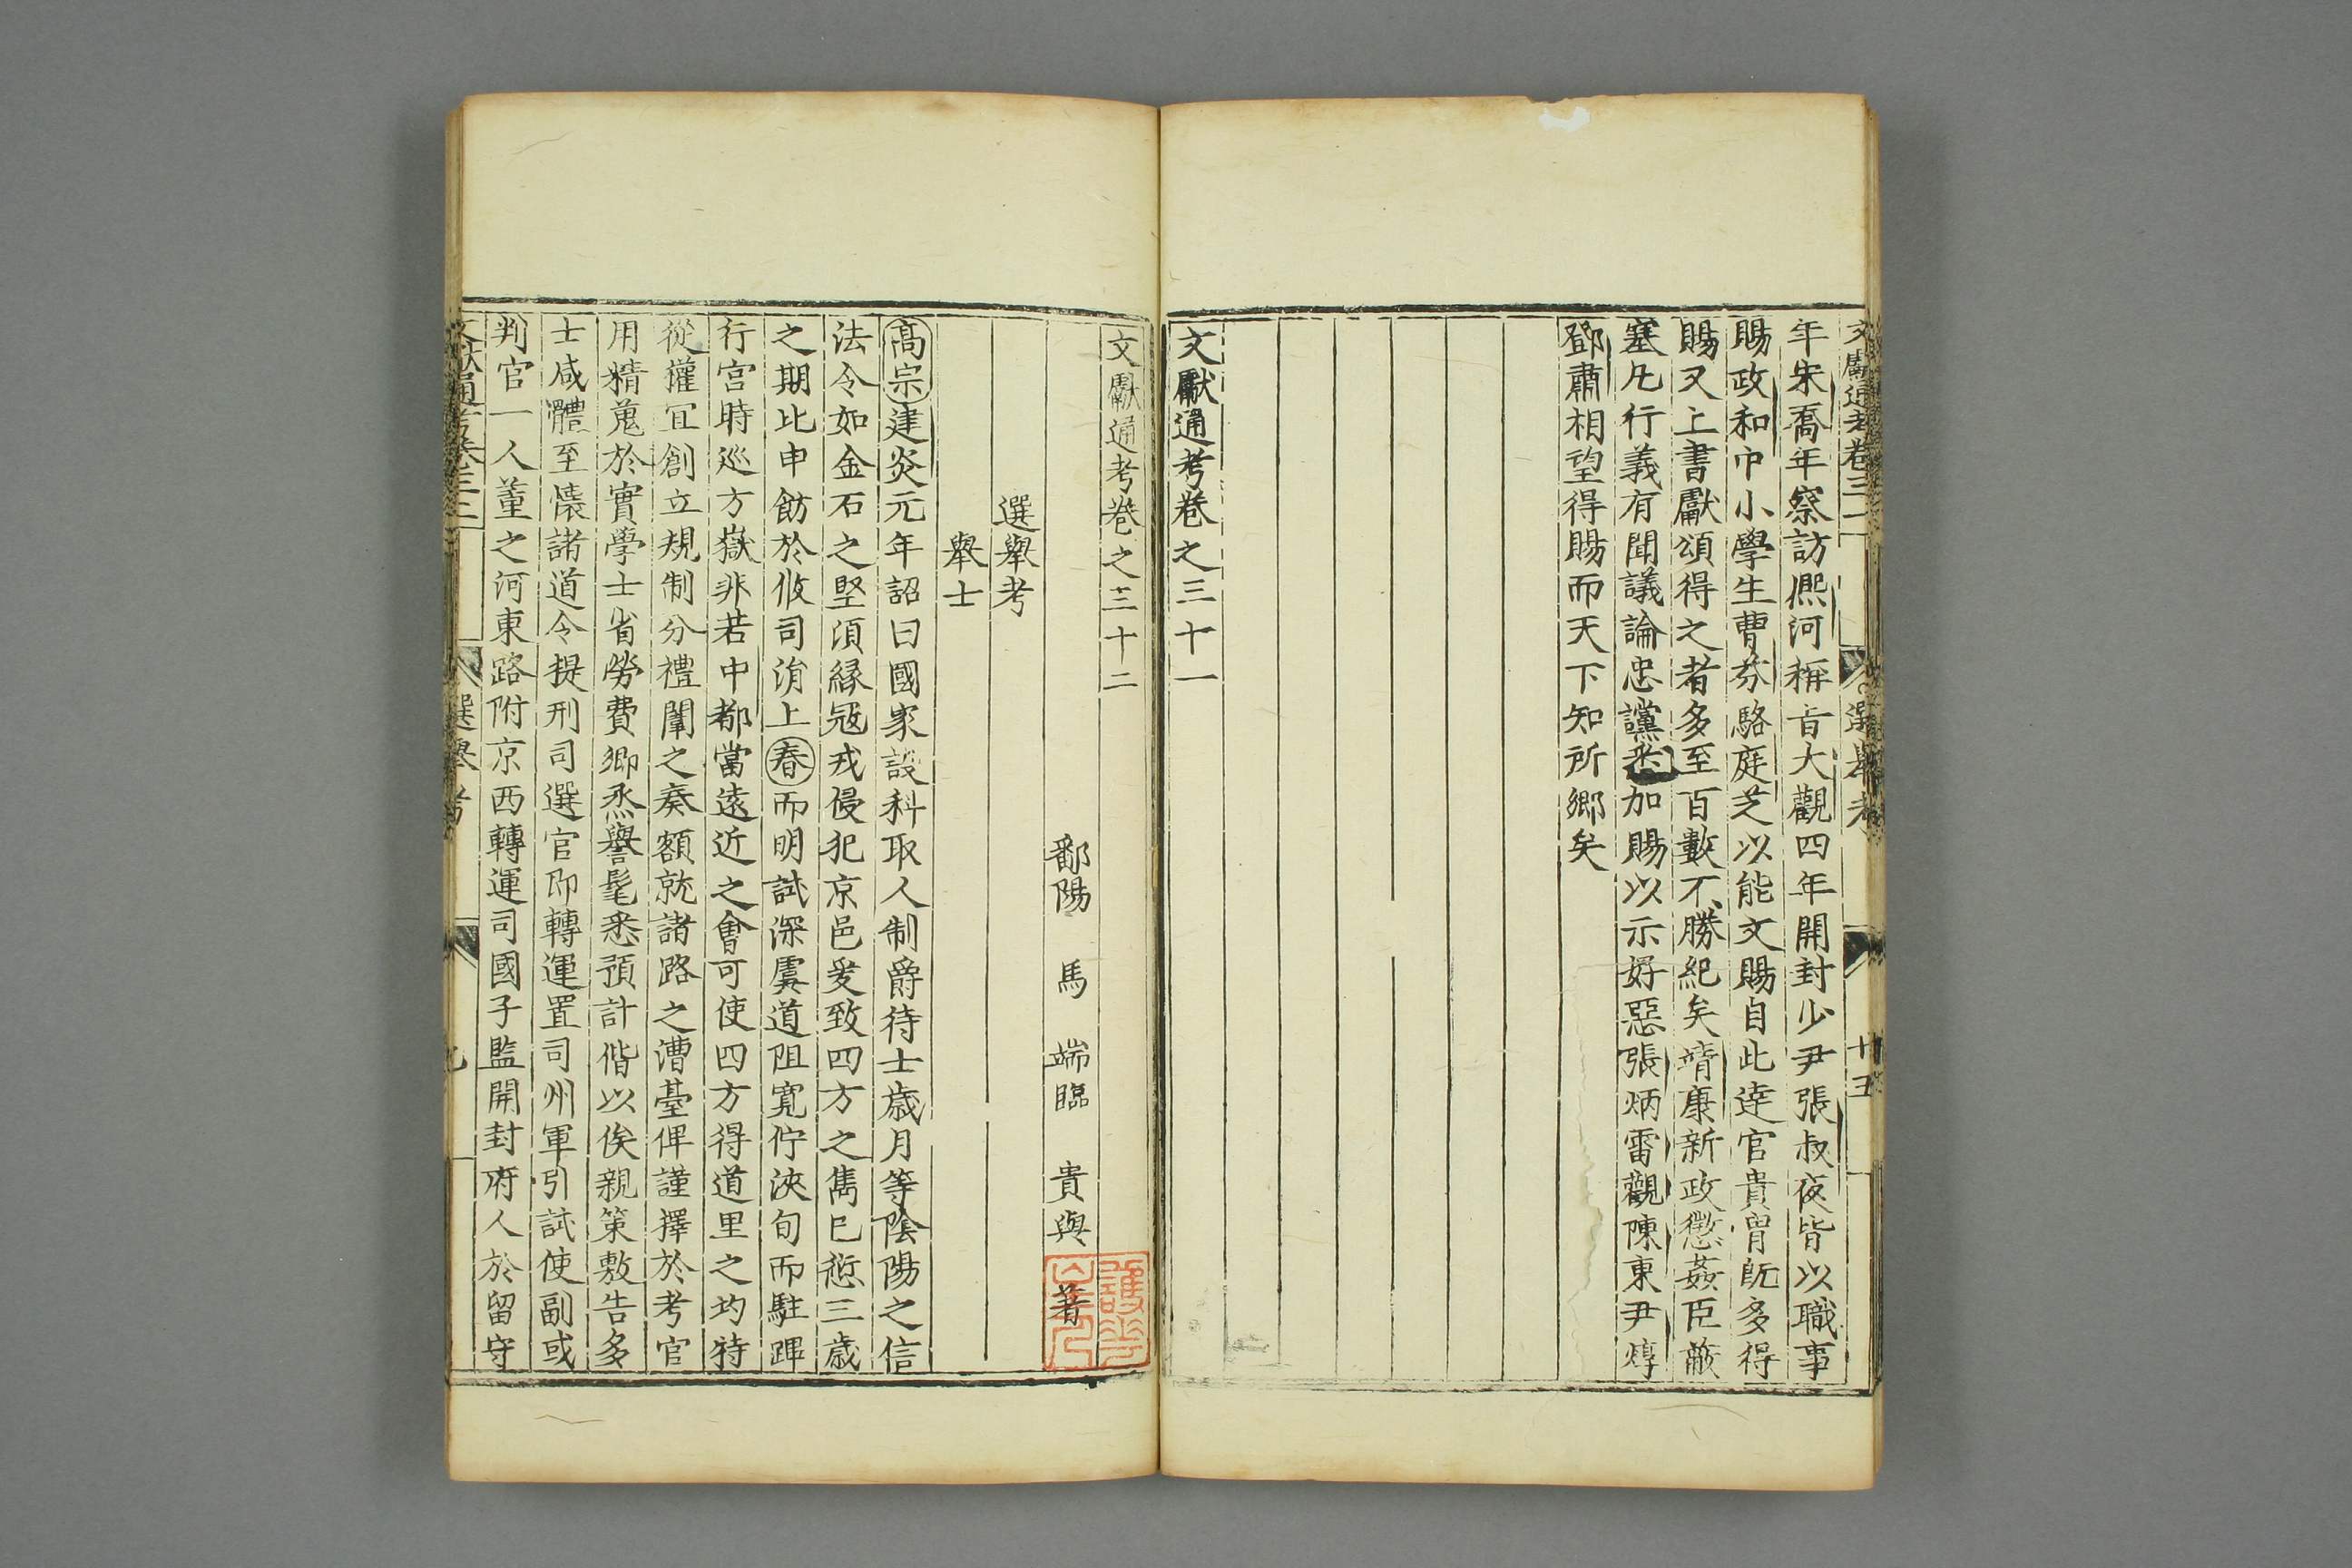 文獻通考卷三十一 選舉考 十五
年宋喬年察訪熈河稱旨大觀四年開封少尹張叔夜皆以職事
賜政和中小學生曹芬駱庭芝以能文賜自此達官貴胄旣多得
賜又上書獻頌得之者多至百數不勝紀矣靖康新政懲姦臣蔽
塞凡行義有聞議論忠讜悉加賜以示好惡張炳雷觀陳東尹焞
鄧肅相望得賜而天下知所鄉矣
文獻通考卷之三十一
文獻通考卷之三十二
鄱陽 馬 端臨 貴與 著
選舉考
舉士
高宗建炎元年詔曰國家設科取人制爵待士歲月等陰陽之信
法令如金石之堅湏縁冦戎侵犯京邑爰致四方之雋已愆三歳
之期比申飭於攸司涓上春而明試深虞道阻寛佇浹旬而駐蹕
行宫時巡方嶽非若中都當遠近之會可使四方得道里之均特
從權冝創立規制分禮闈之奏額就諸路之漕臺俾謹擇於考官
用精蒐於實學士省勞費鄉烝譽髦悉預計偕以俟親策敷告多
士咸體至懐諸道令提刑司選官即轉運置司州軍引試使副或
判官一人董之河東路附京西轉運司國子監開封府人於留守
文獻通考卷三十二 選舉考